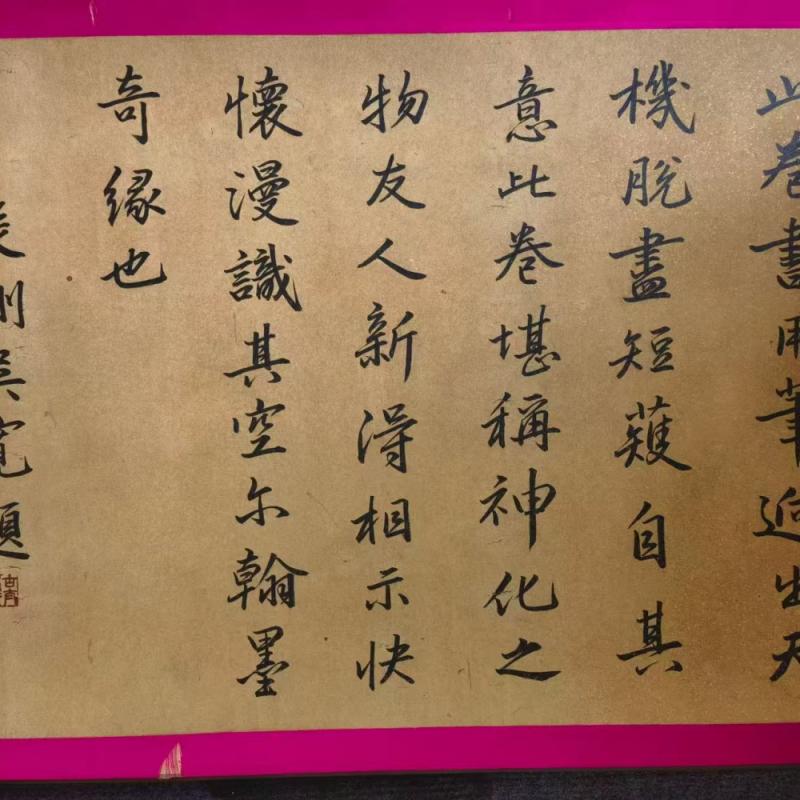 此卷書用筆迥出天
機脫盡短蒦自其
意此卷堪稱神化之
物友人新得相示快
懷漫識其空尓翰墨
奇緣也
吳寬題